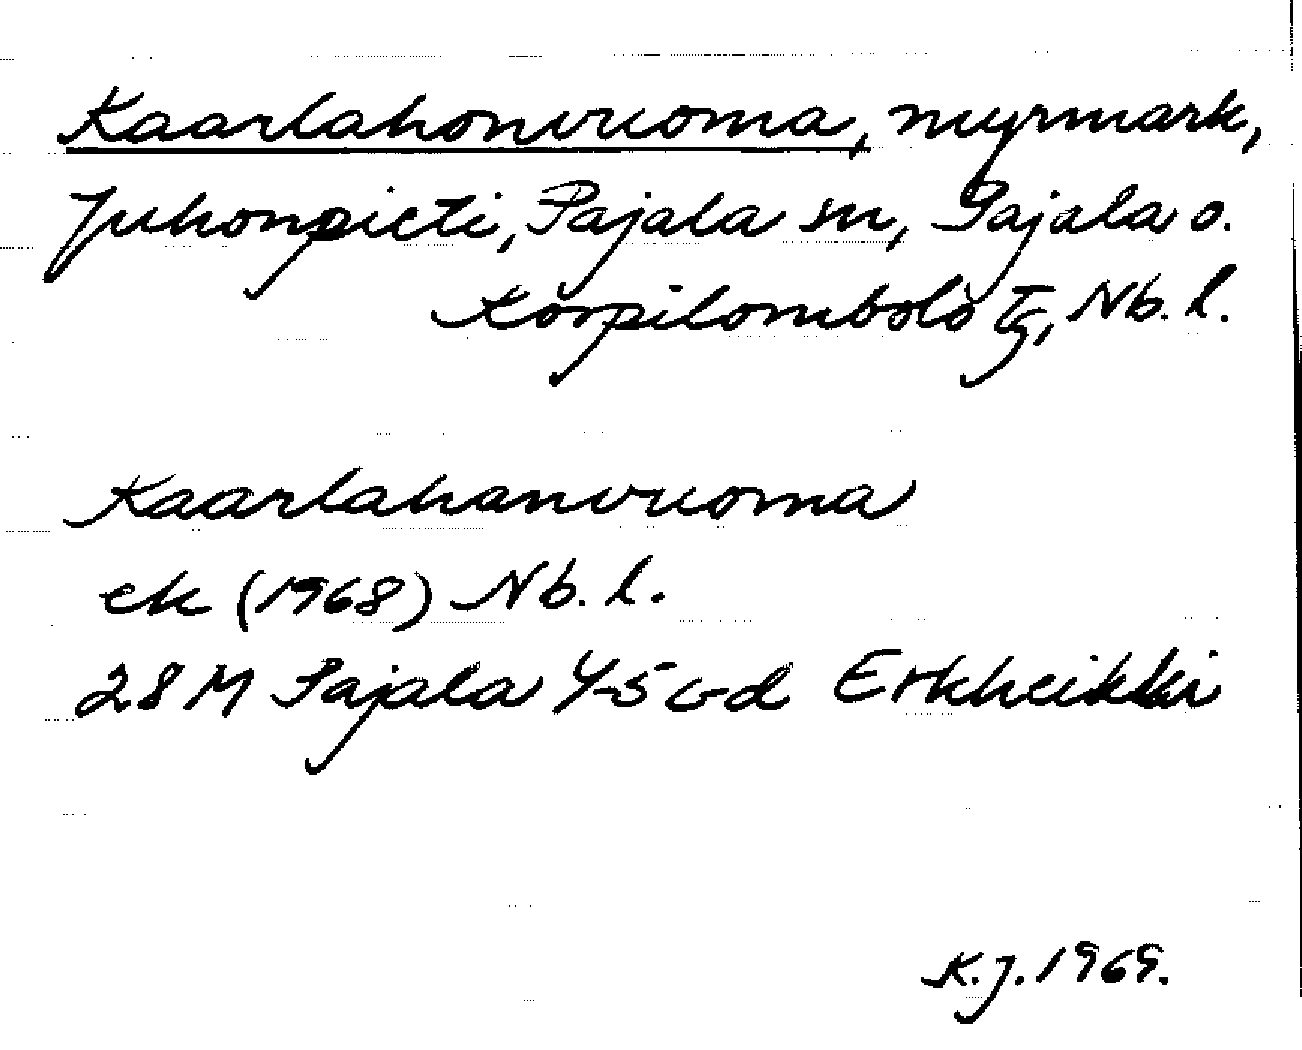 Kaarlahonvuoma, myrmark,
Juhonpieti, Pajala sn, Pajala o.
Korpilombolo tg, Nb. l.
Kaarlahanvuoma
ek (1968) Nb. l.
28 M Pajala 4-5 c-d Erkheikki
K.J. 1969.